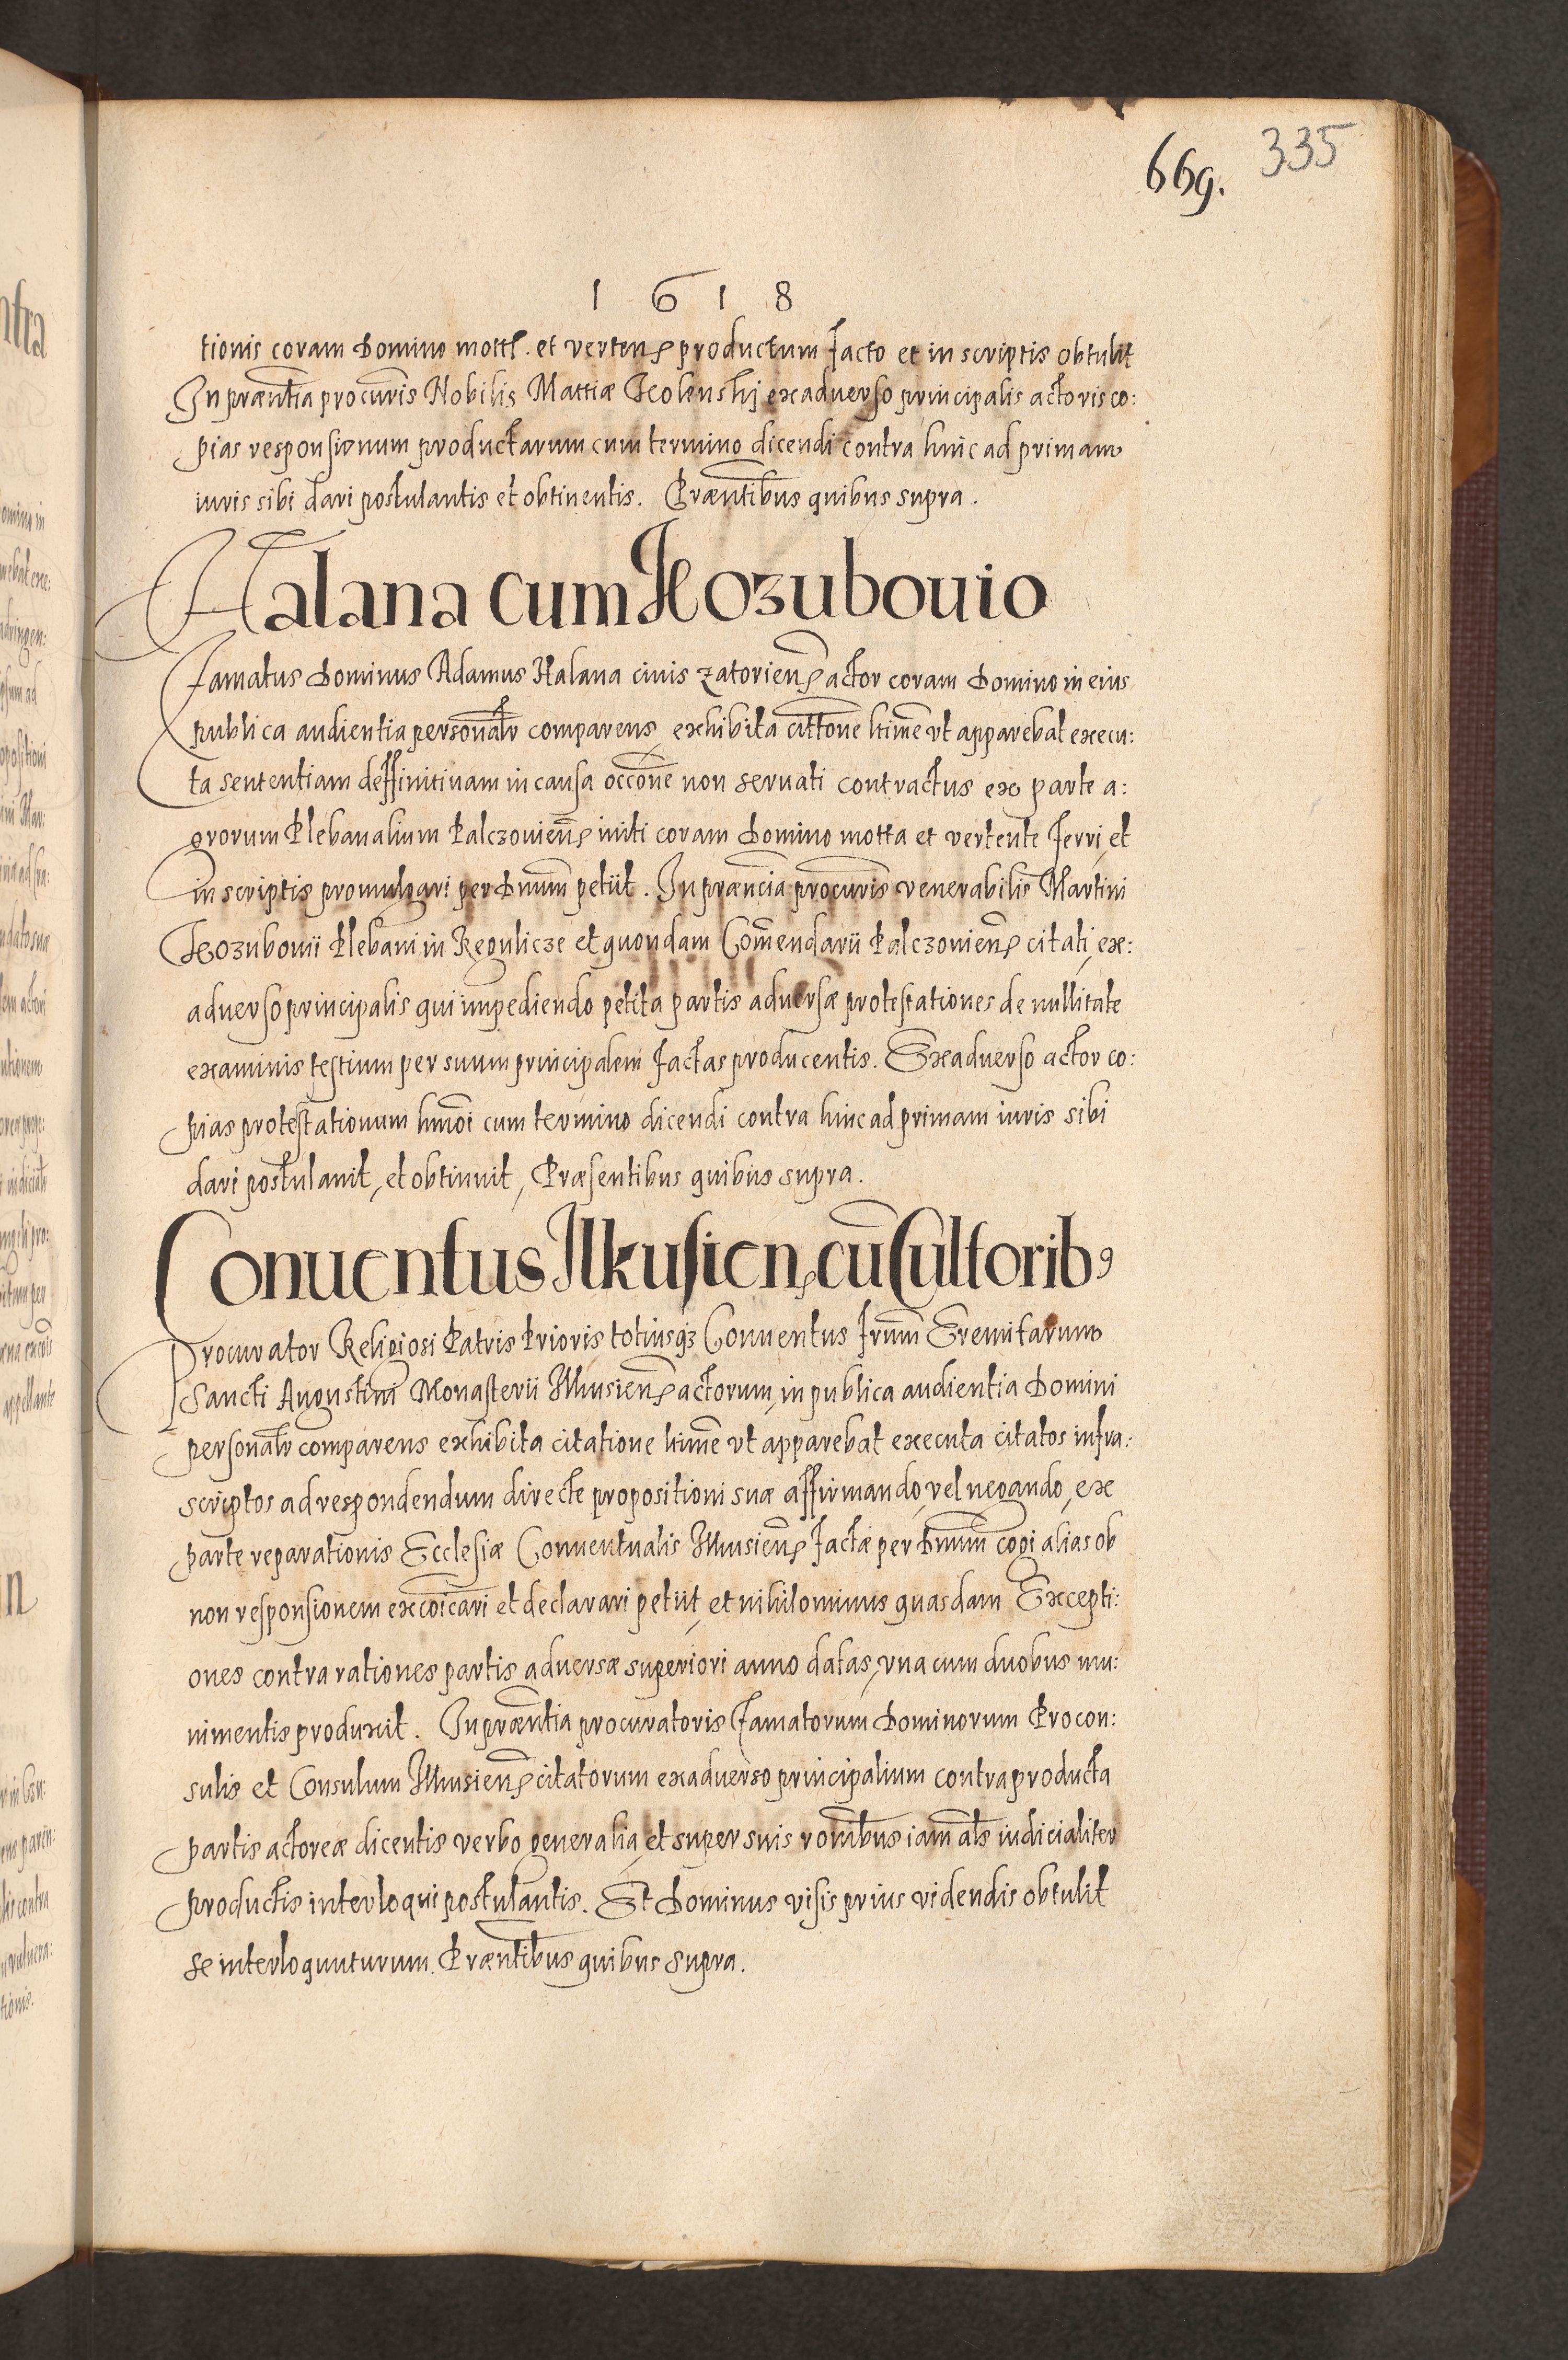 669. 335
1 6 1 8
tionis coram Domino mott. et verten. productum facto et in scriptis obtulit
In præntia procuris Nobilis Mattiæ exaduerso principalis actoris co:
pias responsionum productarum cum termino dicendi contra hinc ad primam
iuris sibi dari postulantis et obtinentis. Præntibus quibus supra.
Halana cum Kozubouio
Famatus Dominus Adamus Halana ciuis zatorien. actor coram Domino in eius
publica audientia personalr comparens, exhibita cittone hime vt apparebat execu:
ta sententiam deffinitiuam in causa occone non seruati contractus ex parte a:
grorum Plebanalium Palczouien. initi coram Domino motta et vertente ferri, et
in scriptis promulgari per Dnum petiit. In præncia procuris venerabilis Martini
Kozubouii Plebani in Regulicze et quondam Comendarii Palczouien. citati, ex:
aduerso principalis qui impediendo petita partis aduersæ protestationes de nullitate
examinis testium per suum principalem factas producentis. Exaduerso actor co:
pias protestationum hmoi cum termino dicendi contra hinc ad primam iuris sibi
dari postulauit, et obtinuit, Præsentibus quibus supra.
Conuentus Ilkusien. cu Cultorib9
Procurator Religiosi Patris Prioris totiusqз Conuentus frum Eremitarum
Sancti Augustini Monasterii Ilkusien. actorum, in publica audientia Domini
personalr comparens exhibita citatione hime vt apparebat executa citatos infra:
scriptos ad respondendum directe propositioni suæ affirmando, vel negando, ex
parte reparationis Ecclesiæ Conuentualis Ilkusien. factæ per Dnum cogi alias ob
non responsionem excoicari et declarari petiit, et nihilominus quasdam Excepti:
ones contra rationes partis aduersæ superiori anno datas, vna cum duobus mu:
nimentis produxit. In præntia procuratoris Famatorum Dominorum Procon:
sulis et Consulum Ilkusien. citatorum exaduerso principalium contra producta
partis actoreæ dicentis verbo generalia, et super suis ronibus iam als iudicialiter
productis interloqui postulantis. Et Dominus visis prius videndis obtulit
se interloquuturum. Præntibus quibus supra.